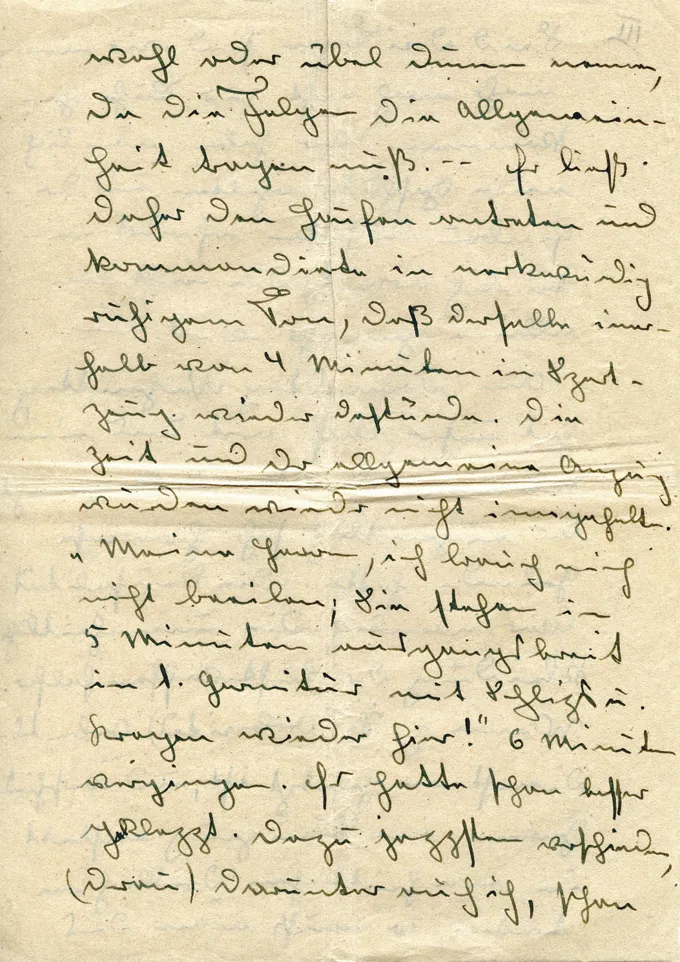 wohl oder übel dumm nennen,
da die Folgen die Allgemein-
heit tragen muß. -- Er ließ
daher den Haufen antreten und
kommandierte in merkwürdig
ruhigem Ton, daß derselbe iner-
halb von 4 Minuten in Sport-
zeug wieder dastünde. Die
Zeit und der allgemeine Anzug
wurden wieder nicht innegehalten.
„Meine Herren, ich brauch mich
nicht beeilen; Sie stehen in
5 Minuten ausgangsbereit
in 1. Garnitur mit Schlips u.
Kragen wieder hier!" 6 Minuten
vergingen. Er hatte schon besser
geklappt. Dazu jappsten verschiedene,
(drau) darunter auch ich, schon